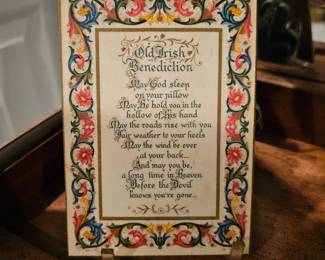 Old Irish
Benediction
May God sleep
on your pillow
May He hold you in the
hollow of His hand
May the roads rise with you
Fair weather to your heels
May the wind be ever
at your back...
And may you be,
a long time in Heaven
Before the Devil
knows you're gone...